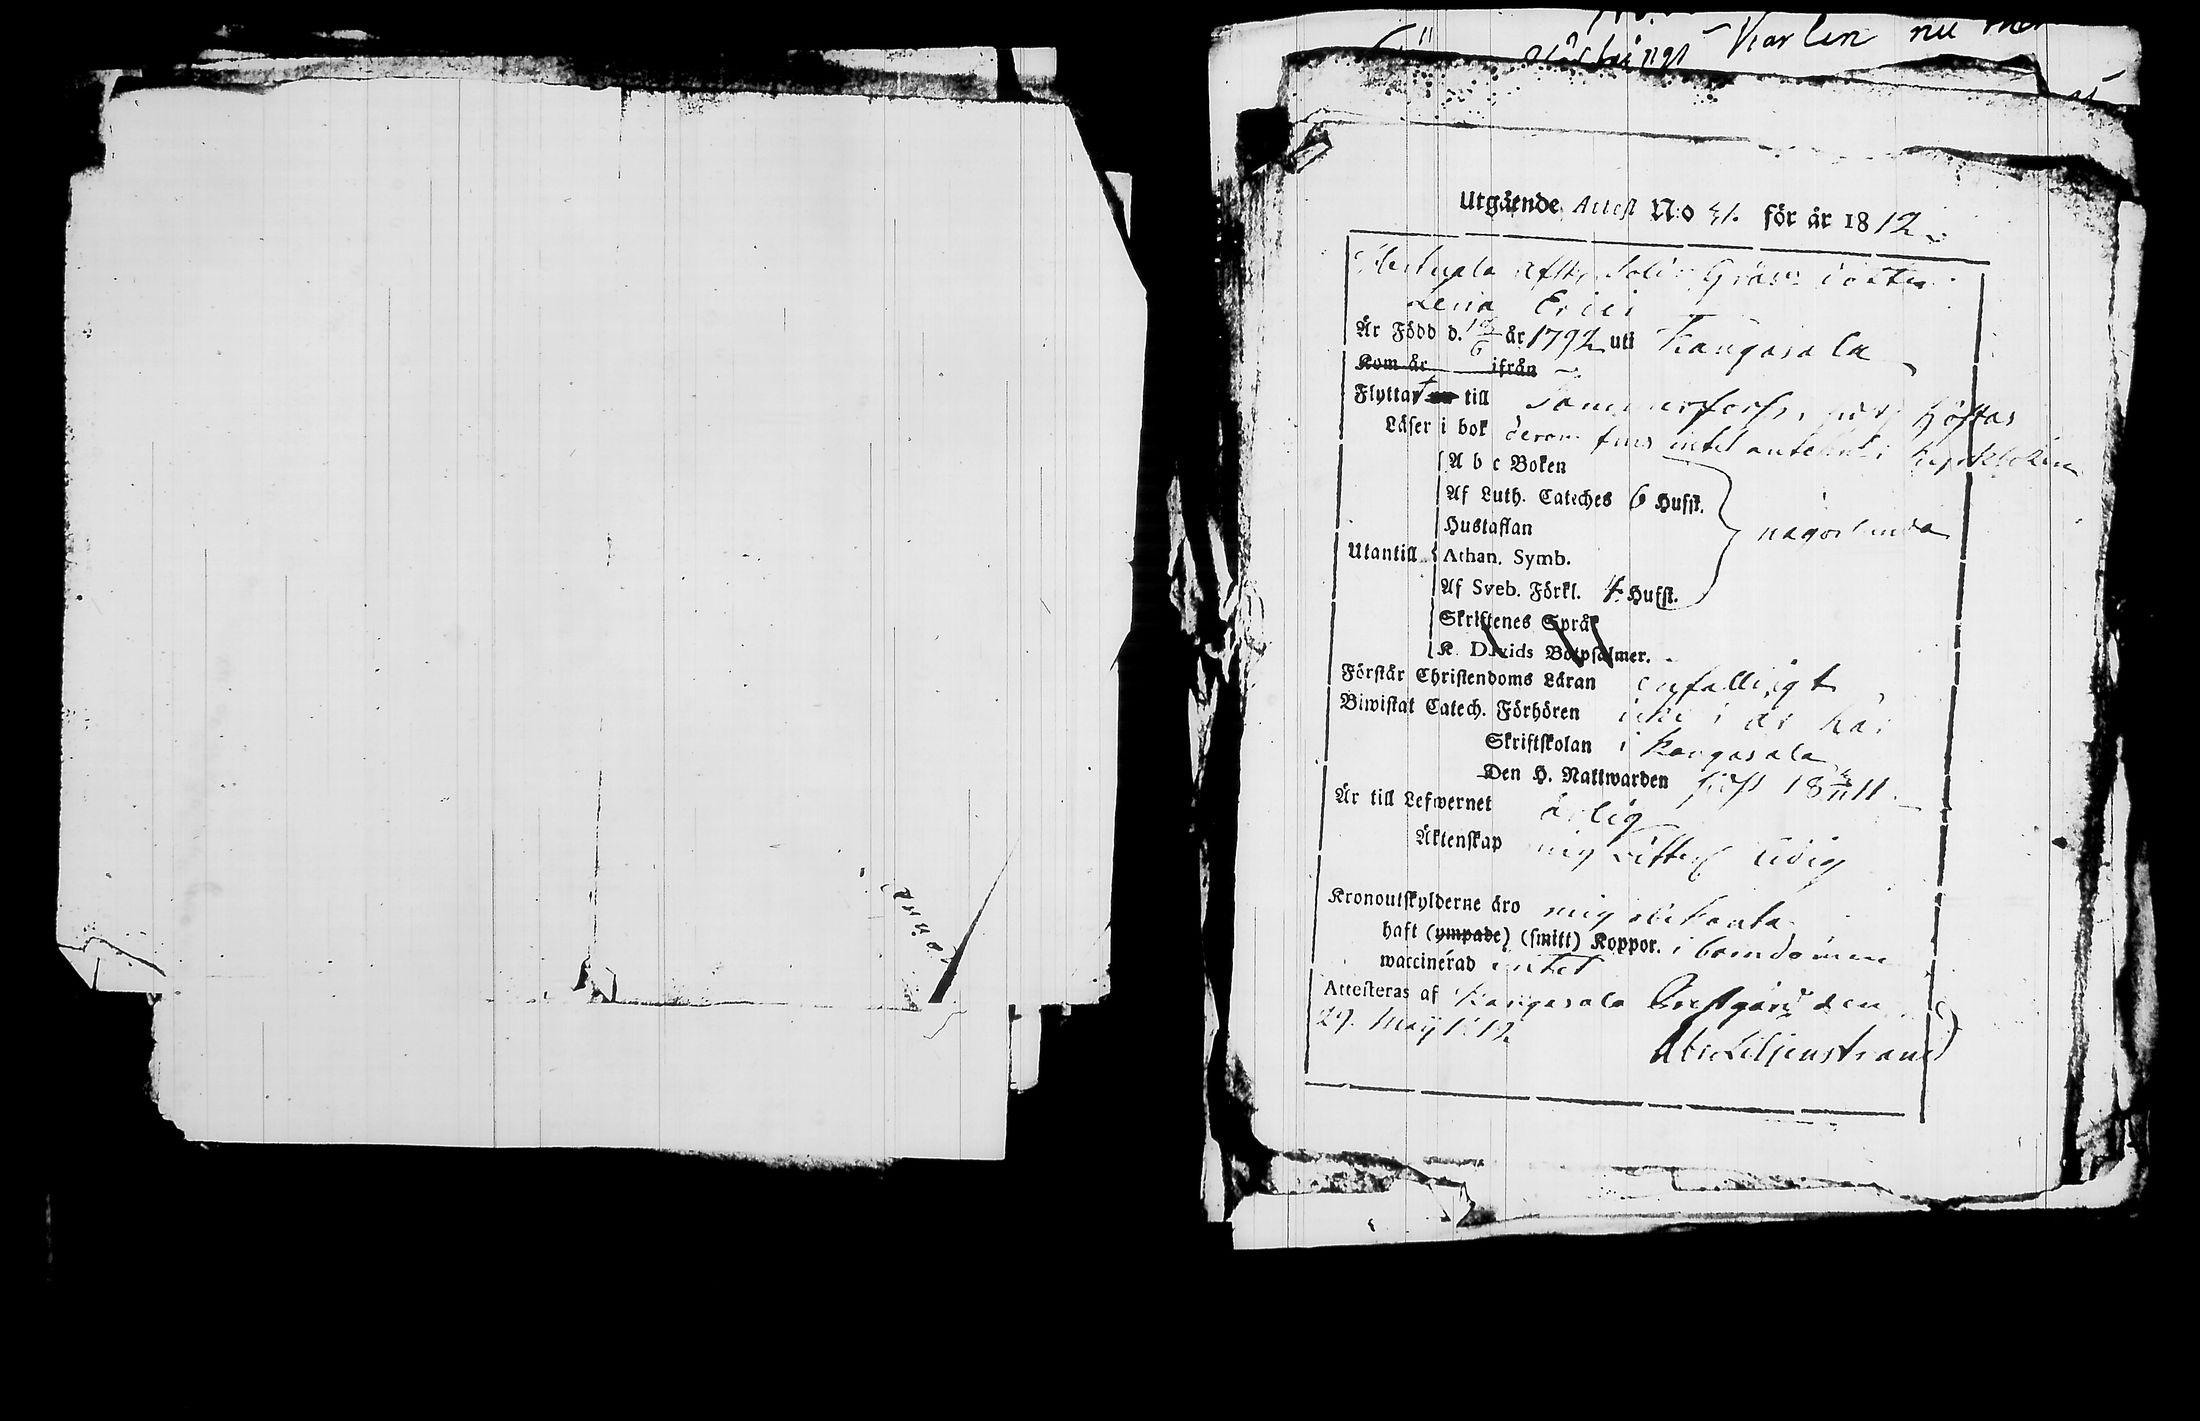 Karlen nu
Utgående Attest N:o 41. för år 1812
dotter
Lena Erici
Är Född d. 18/6 år 1792 uti Kangasala
Kom år ifrån
Flyttar till Tammerfors, höstas
Läser i bok derom fins intet anteknt i Kyrkboken
A b c Boken
Af Luth. Cateches 6 Husst.
Hustaflan
någorlunda
Utantill Athan. Symb.
Af Sveb. Förkl. 4 Husst.
Skriftenes Språk
K. Davids Botpsalmer.
Förstår Christendoms Läran enfalligt
Biwistat Catech. Förhören icke i år här
Skriftskolan i Kangasala
Den H. Nattwarden sist 18 11
Är till Lefwernet ärlig
Äktenskap mig ledig
Kronoutskylderne äro mig obekanta
haft (ympade) (smitt) Koppor. i barndomen
waccinerad intet
Attesteras af Kangasala Prestgård den
29. Maij 1812
Abr Liljenstrand